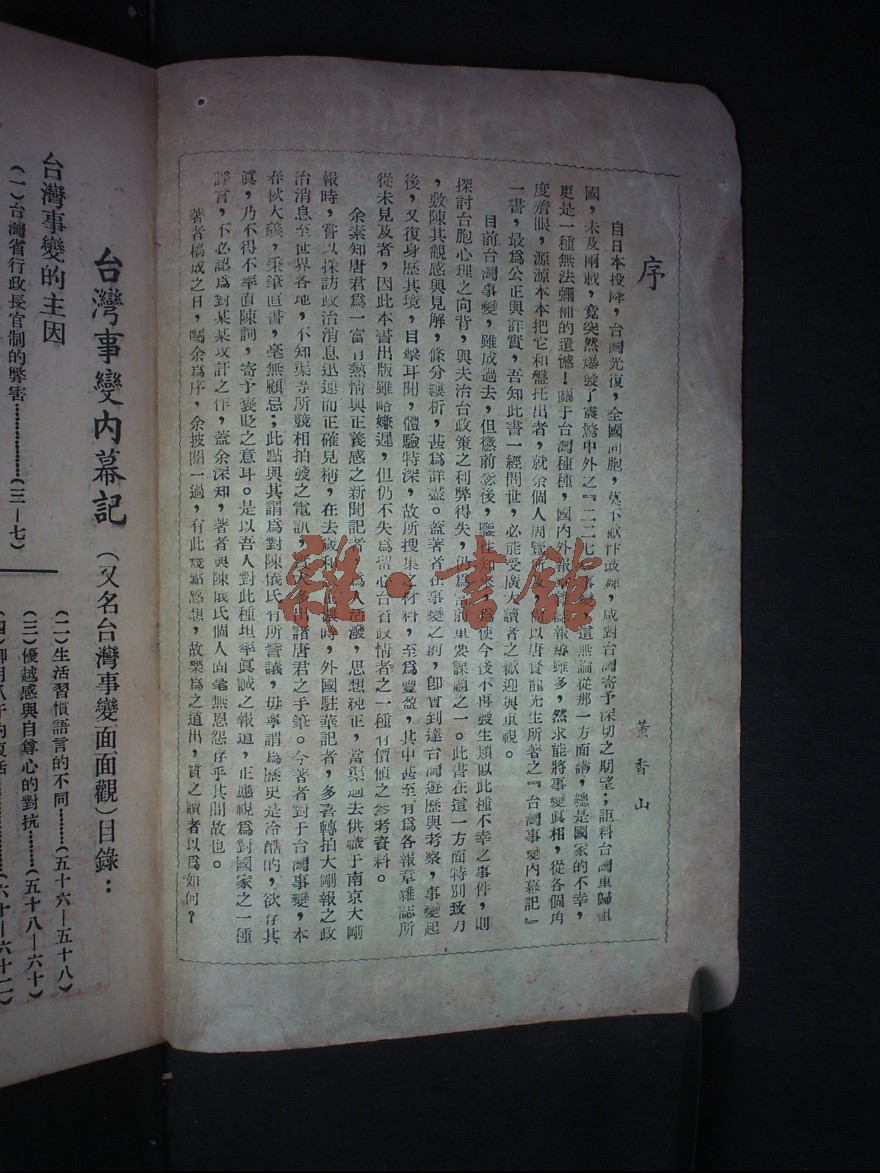 序
董香山
自日本投降，台灣光復，全國同胞，莫不歡忭鼓舞，咸對台灣寄予深切之期望；詎料台灣重歸祖
國，未及兩載，竟突然爆發了震驚中外之『二二七』事變，這無論從那一方面講，總是國家的不幸，
更是一種無法彌補的遺憾！關于台灣種種，國內外報章雜誌報導雖多，然求能將事變眞相，從各個角
度着眼，源源本本把它和盤托出者，就余個人周覽所及，何以唐賢龍先生所著之『台灣事變內幕記』
一書，最爲公正與詳實，吾知此書一經問世，必能受廣大讀者之歡迎與重視。
目前台灣事變，雖成過去，但懲前毖後，鑒往知來，爲使今後不再發生類似此種不幸之事件，則
探討台胞心理之向背，與夫治台政策之利弊得失，當前重要課題之一。此書在這一方面特別致力
，敷陳其觀感與見解，條分縷析，甚爲詳盡。蓋著者在事變之前，卽曾到達台灣遊歷與考察，事變起
後，又復身歷其境，目擊耳聞，體驗特深，故所搜集之材料，至爲豐盈，其中甚至有爲各報章雜誌所
從未見及者，因此本書出版雖略嫌遲，但仍不失爲留心台省政情者之一種有價值之參考資料。
余素知唐君爲一富有熱情與正義感之新聞記者，爲人活潑，思想純正，當渠過去供職于南京大剛
報時，嘗以採訪政治消息迅速而正確見稱，在去歲和時，外國駐華記者，多喜轉拍大剛報之政
治消息至世界各地，不知渠等所競相拍發之電訊，大多出諸唐君之手筆。今著者對于台灣事變，本
春秋大義，秉筆直書，毫無顧忌；此點與其謂爲對陳儀氏有所訾議，毋寧謂爲歷史是冷酷的，欲存其
眞，乃不得不率直陳詞，寄予褒貶之意耳。是以吾人對此種坦率眞誠之報道，正應視爲對國家之一種
諍言，不必認爲對某某攻訐之作，蓋余深知，著者與陳儀氏個人間毫無恩怨存乎其間故也。
著者稿成之日，囑余爲序，余披閱一過，有此幾點感想，故樂爲之道出，質之讀者以爲如何？
台灣事變內幕記（又名台灣事變面面觀）目錄：
台灣事變的主因
（一）台灣省行政長官制的弊害……………（三—七）
（二）生活習慣語言的不同………（五十六—五十八）
（三）優越感與自尊心的對抗………（五十八—六十）
雜·書館